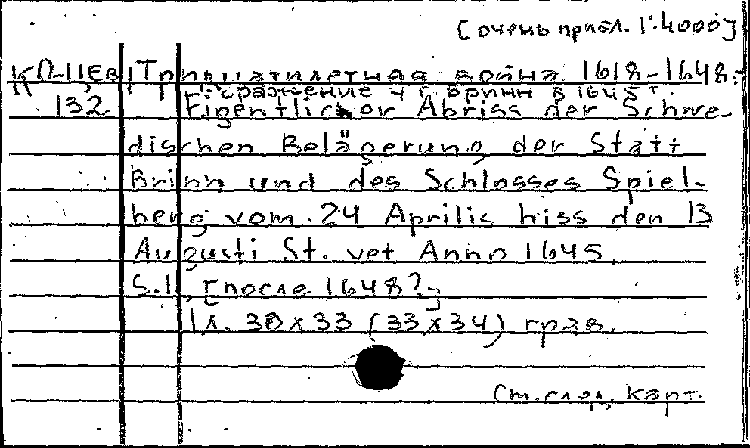 [очень прибл. 1:4000]
К 0-Ц.Ев Тридцатилетняя война 1618-1648.
Сражение у г. Бринн в 1645 г.
132 Eigentlicher Abriss der Schwe-
dischen Belägerung der Statt
Brinn und des Schlosses Spiel-
berg vom 24 Aprilis biss den 13
Augusti St. vet Anno 1645.
S.l., [после 1648?]
1 л. 30x33 (33x34) грав.
См. след. карт.